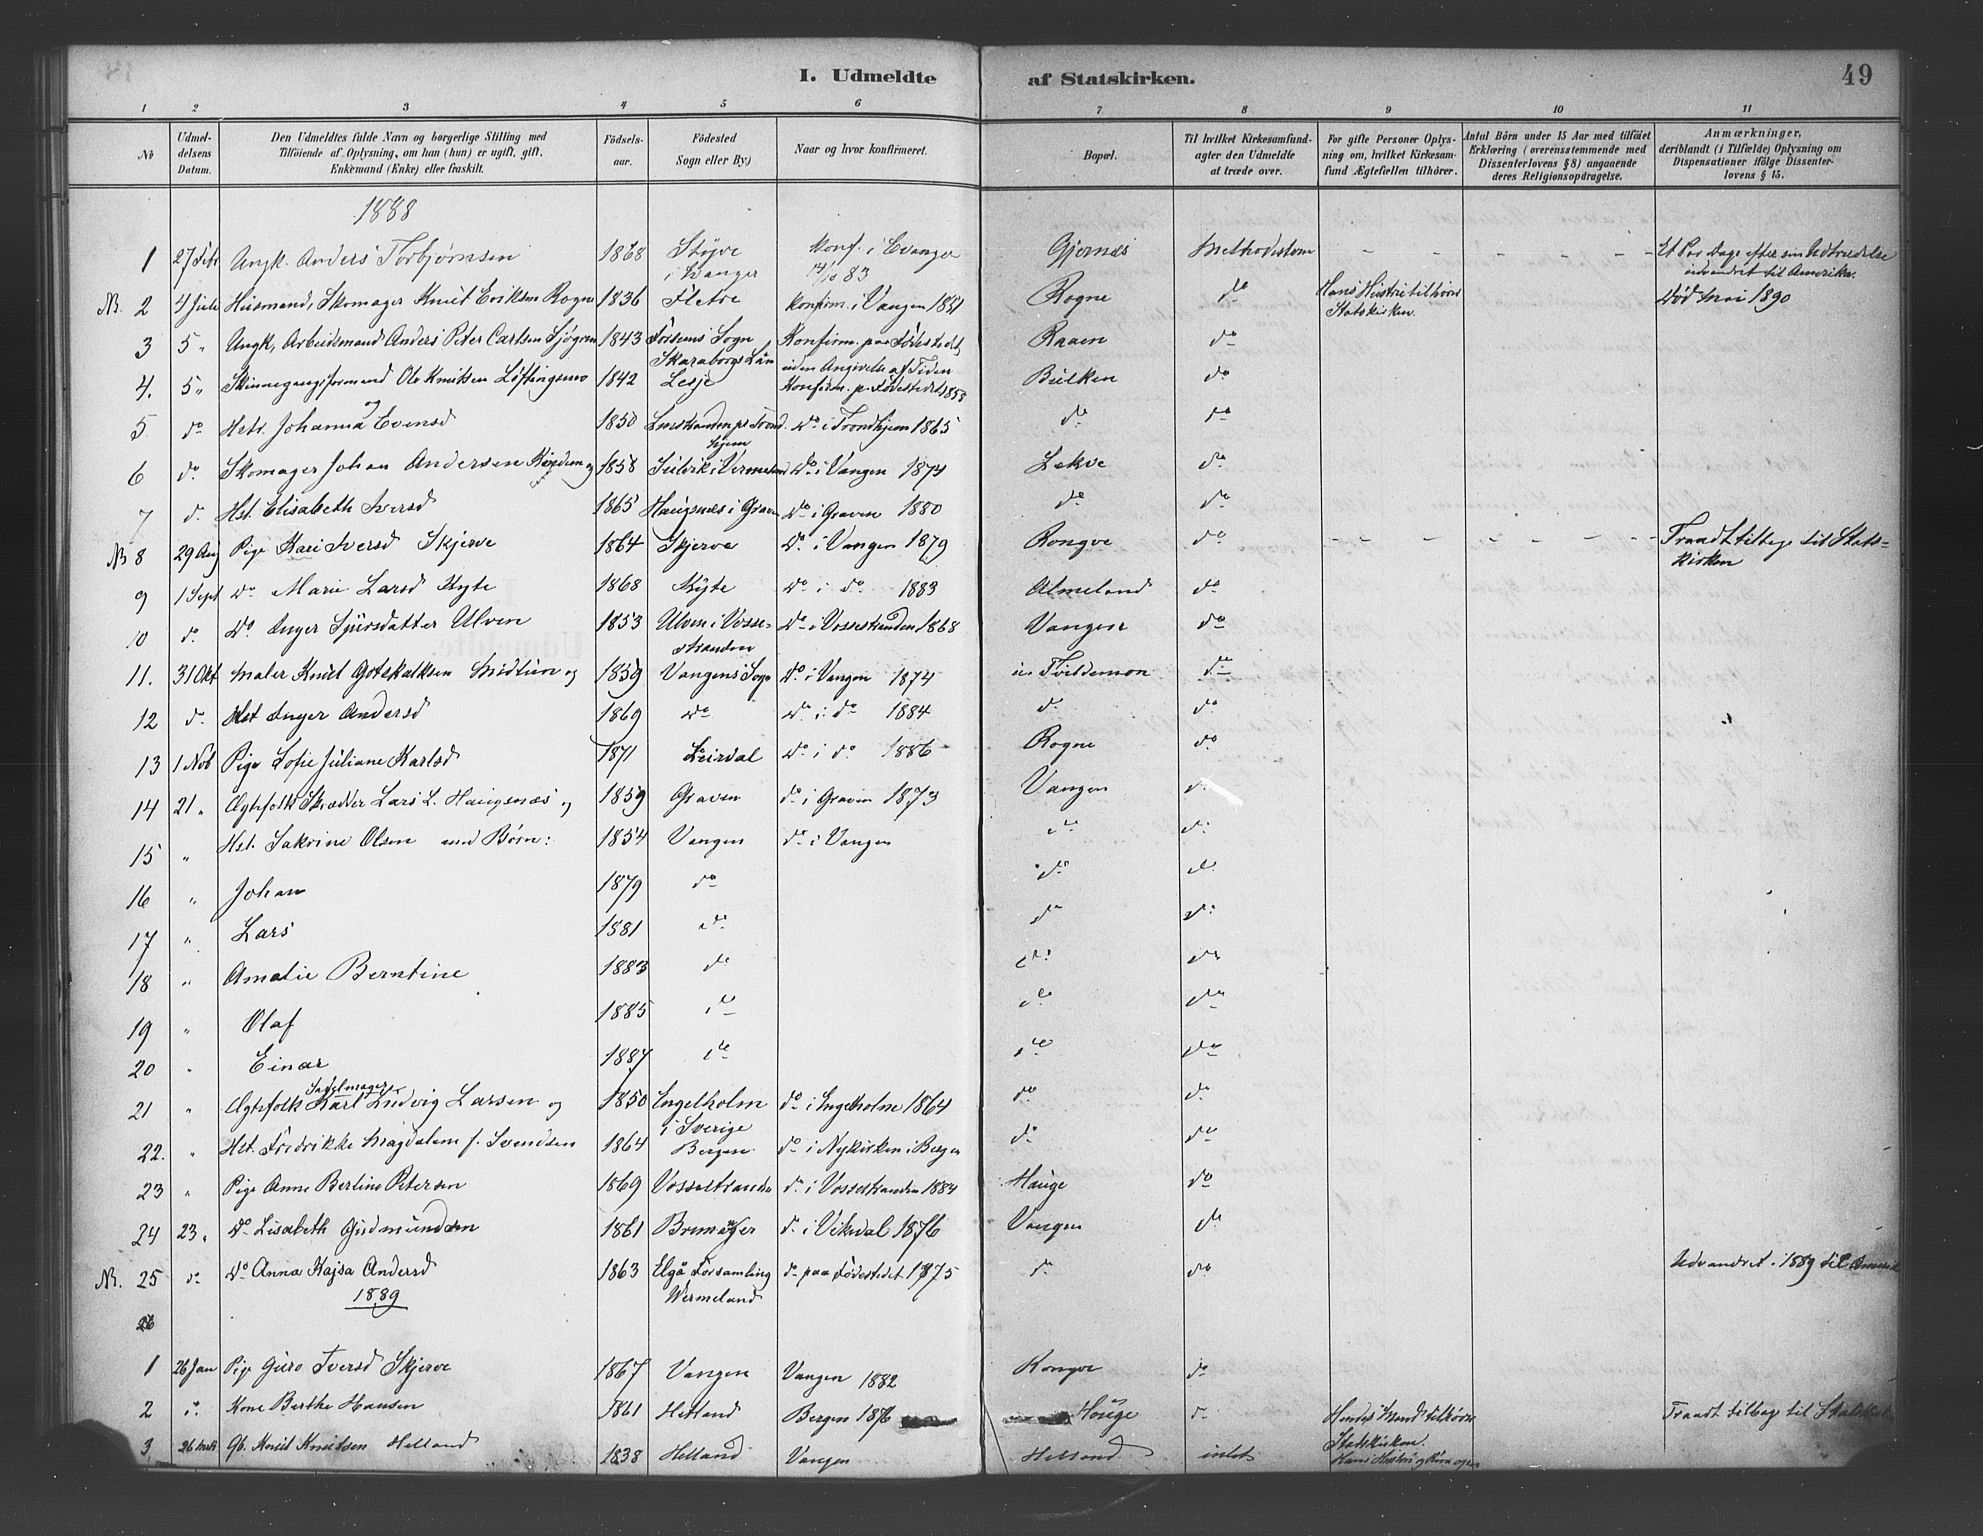 I. Udmeldte af Statskirken. 49
1 2 3 4 5 6 7 8 9 10 11
No
Udmeldelsens Datum.
Den Udmeldtes fulde Navn og borgerlige Stilling med Tilföiende af Oplysning, om han (hun) er ugift, gift, Enkemand (Enke) eller fraskilt.
Födselsaar.
Födested Sogn eller By.)
Naar og hvor konfirmeret.
Bopæl.
Til hvilket Kirkesamfund agter den Udmeldte at træde over.
For gifte Personer Oplysning om, hvilket Kirkesamfund Ægtefællen tilhörer.
Antal Börn under 15 Aar med tilföiet Erklæring (overensstemmende med Dissenterlovens § 8) angaaende deres Religionsopdragelse.
Anmærkninger, deriblandt (i Tilfælde) Oplysning om Dispensationer ifölge Dissenterlovens § 15.
1888
1 27 Febr Ungk. Anders Torbjørnsen 1868 Støjve i Evanger konf. i Evanger 14/10 83 Gjernes Methodistern - - - - - - Et Par Dage efter sin Udtrædelse udvandret til Amerika.
NB. 2 4 Juli Husmand, Skomager Knut Eriksen Rogne 1836 Fletre konfirm. i Vangen 1851 Rogne do Hans Hustru tilhører Statskirken. Død Mai 1890
3 5 " Ungk, Arbeidsmand Anders Peter Carlsen Sjøgren 1843 Forsems Sogn Skaraborgs Län Konfirm. paa Fødestedet, uden Angivelse af Tiden Raaen do
4. 5 " Skinnegangsformand Ole Knutsen Løftingsmo og 1842 Lesje Konfirm. p. Fødestedet 1858 Bulken do
5 do Hstr. Johanna Evensd 1850 Leerstranden pr Trondhjem do i Trondhjem 1865 do do
6 do Skomager Johan Andersen og 1858 Silvik i Vermeland do i Vangen 1874 Lekve do
7 do Hst. Elisabeth Iversd 1865 Haugsnes i Graven do i Graven 1880 do do
NB 8 29 Aug Pige Kari Iversd Skjerve 1864 Skjerve do i Vangen 1879 Rongve do - - - - - - Traadt tilbage til Statskirken
9 1 Sept do Marie Larsd Kyte 1868 Kyte do i do 1883 Almeland do
10 do do Inger Sjursdatter Ulven 1853 Ulven i Vossestranden do i Vossestranden 1868 Vangen do
11. 31 Okt Maler Knut Gotskalksen Midtun og 1859 Vangens Sogn do i Vangen 1874 Tvildemoen do
12 do Hst Inger Andersd 1869 do do i do 1884 do do
13 1 Nob Pige Sofie Juliane Karlsd 1871 Leirdal do i do 1886 Rogne do
14 21 " Ægtefolk Skrædder Lars L. Haugsnæs og 1859 Graven do i Graven 1873 Vangen do
15 " Hst. Sakrine Olsen med Børn: 1854 Vangen do i Vangen do do
16 " Johan 1879 do do do
17 " Lars 1881 do do do
18 " Amalie Berntine 1883 do do do
19 " Olaf 1885 do do do
20 " Einar 1887 do do do
21 " Ægtefolk Sadelmager Karl Ludvig Larsen og 1850 Engelholm i Sverige do i Engelholm 1864 do do
22. " Hst. Fredrikke Magdalene f. Svendsen 1864 Bergen do i Nykirken i Bergen do do
23 " Pige Anne Bertine Petersen 1869 Vossestranden do i Vossestranden 1884 Hauge do
24 23 " do Lisabeth Gudmundsen 1861 do i Vikedal 1876 Vangen do
NB. 25 do do Anna Kajsa Andersd 1863 Elgå Forsamling Wermeland do paa Fødestedet 1875 do do Udvandret i 1889 til Amerika
1889
26
1 26 Jan Pige Guro Iversd Skjerve 1867 Vangen Vangen 1882 Rongve do
2 do Kone Berthe Hansen 1861 Helland Bergen 1876 Hauge do Hendes Mand tilhører Statskirken. Traadt tilbage til Statskirke
3 26 Gb. Knut Knutsen Helland 1838 Helland Vangen Helland intet Hans Hustru og Børn